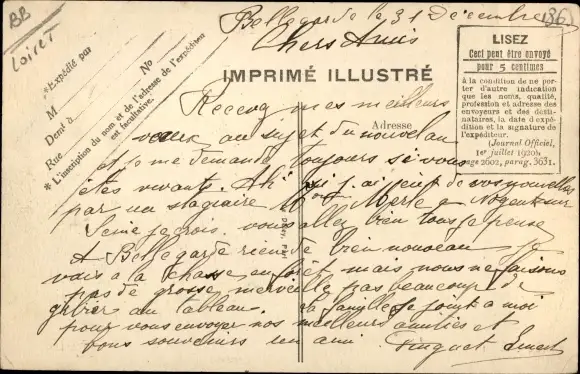 BB
Loiret
Bellegarde le 31 Décembre
136
Chers Amis
LISEZ
Ceci peut être envoyé
pour 5 centimes
à la condition de ne por-
ter d'autre indication
que les noms, qualité,
profession et adresse des
envoyeurs et des desti-
nataires, la date d'expé-
dition et la signature de
l'expéditeur.
(Journal Officiel,
1er juillet 1920,
page 2602, parag. 3631.
* Expédié par
M
Demt à
Rue
No
* L'inscription du nom et de l'adresse de l'expéditeur
est facultative.
IMPRIMÉ ILLUSTRÉ
Adresse
Recevez mes meilleurs
vœux au sujet du nouvel an
et je me demande toujours si vous
êtes vivants. Ah si j'ai eu de vos nouvelles
par un stagiaire Mr Merle a Nogent sur
Seine je crois. vous allez bien tous je pense
A Bellegarde rien de bien nouveau je
vais a la chasse en forêt mais nous ne faisons
pas de grosse merveille pas beaucoup de
gibier au tableau. la famille se joint a moi
pour vous envoyer nos meilleurs amitiés et
vous souvenirs un ami